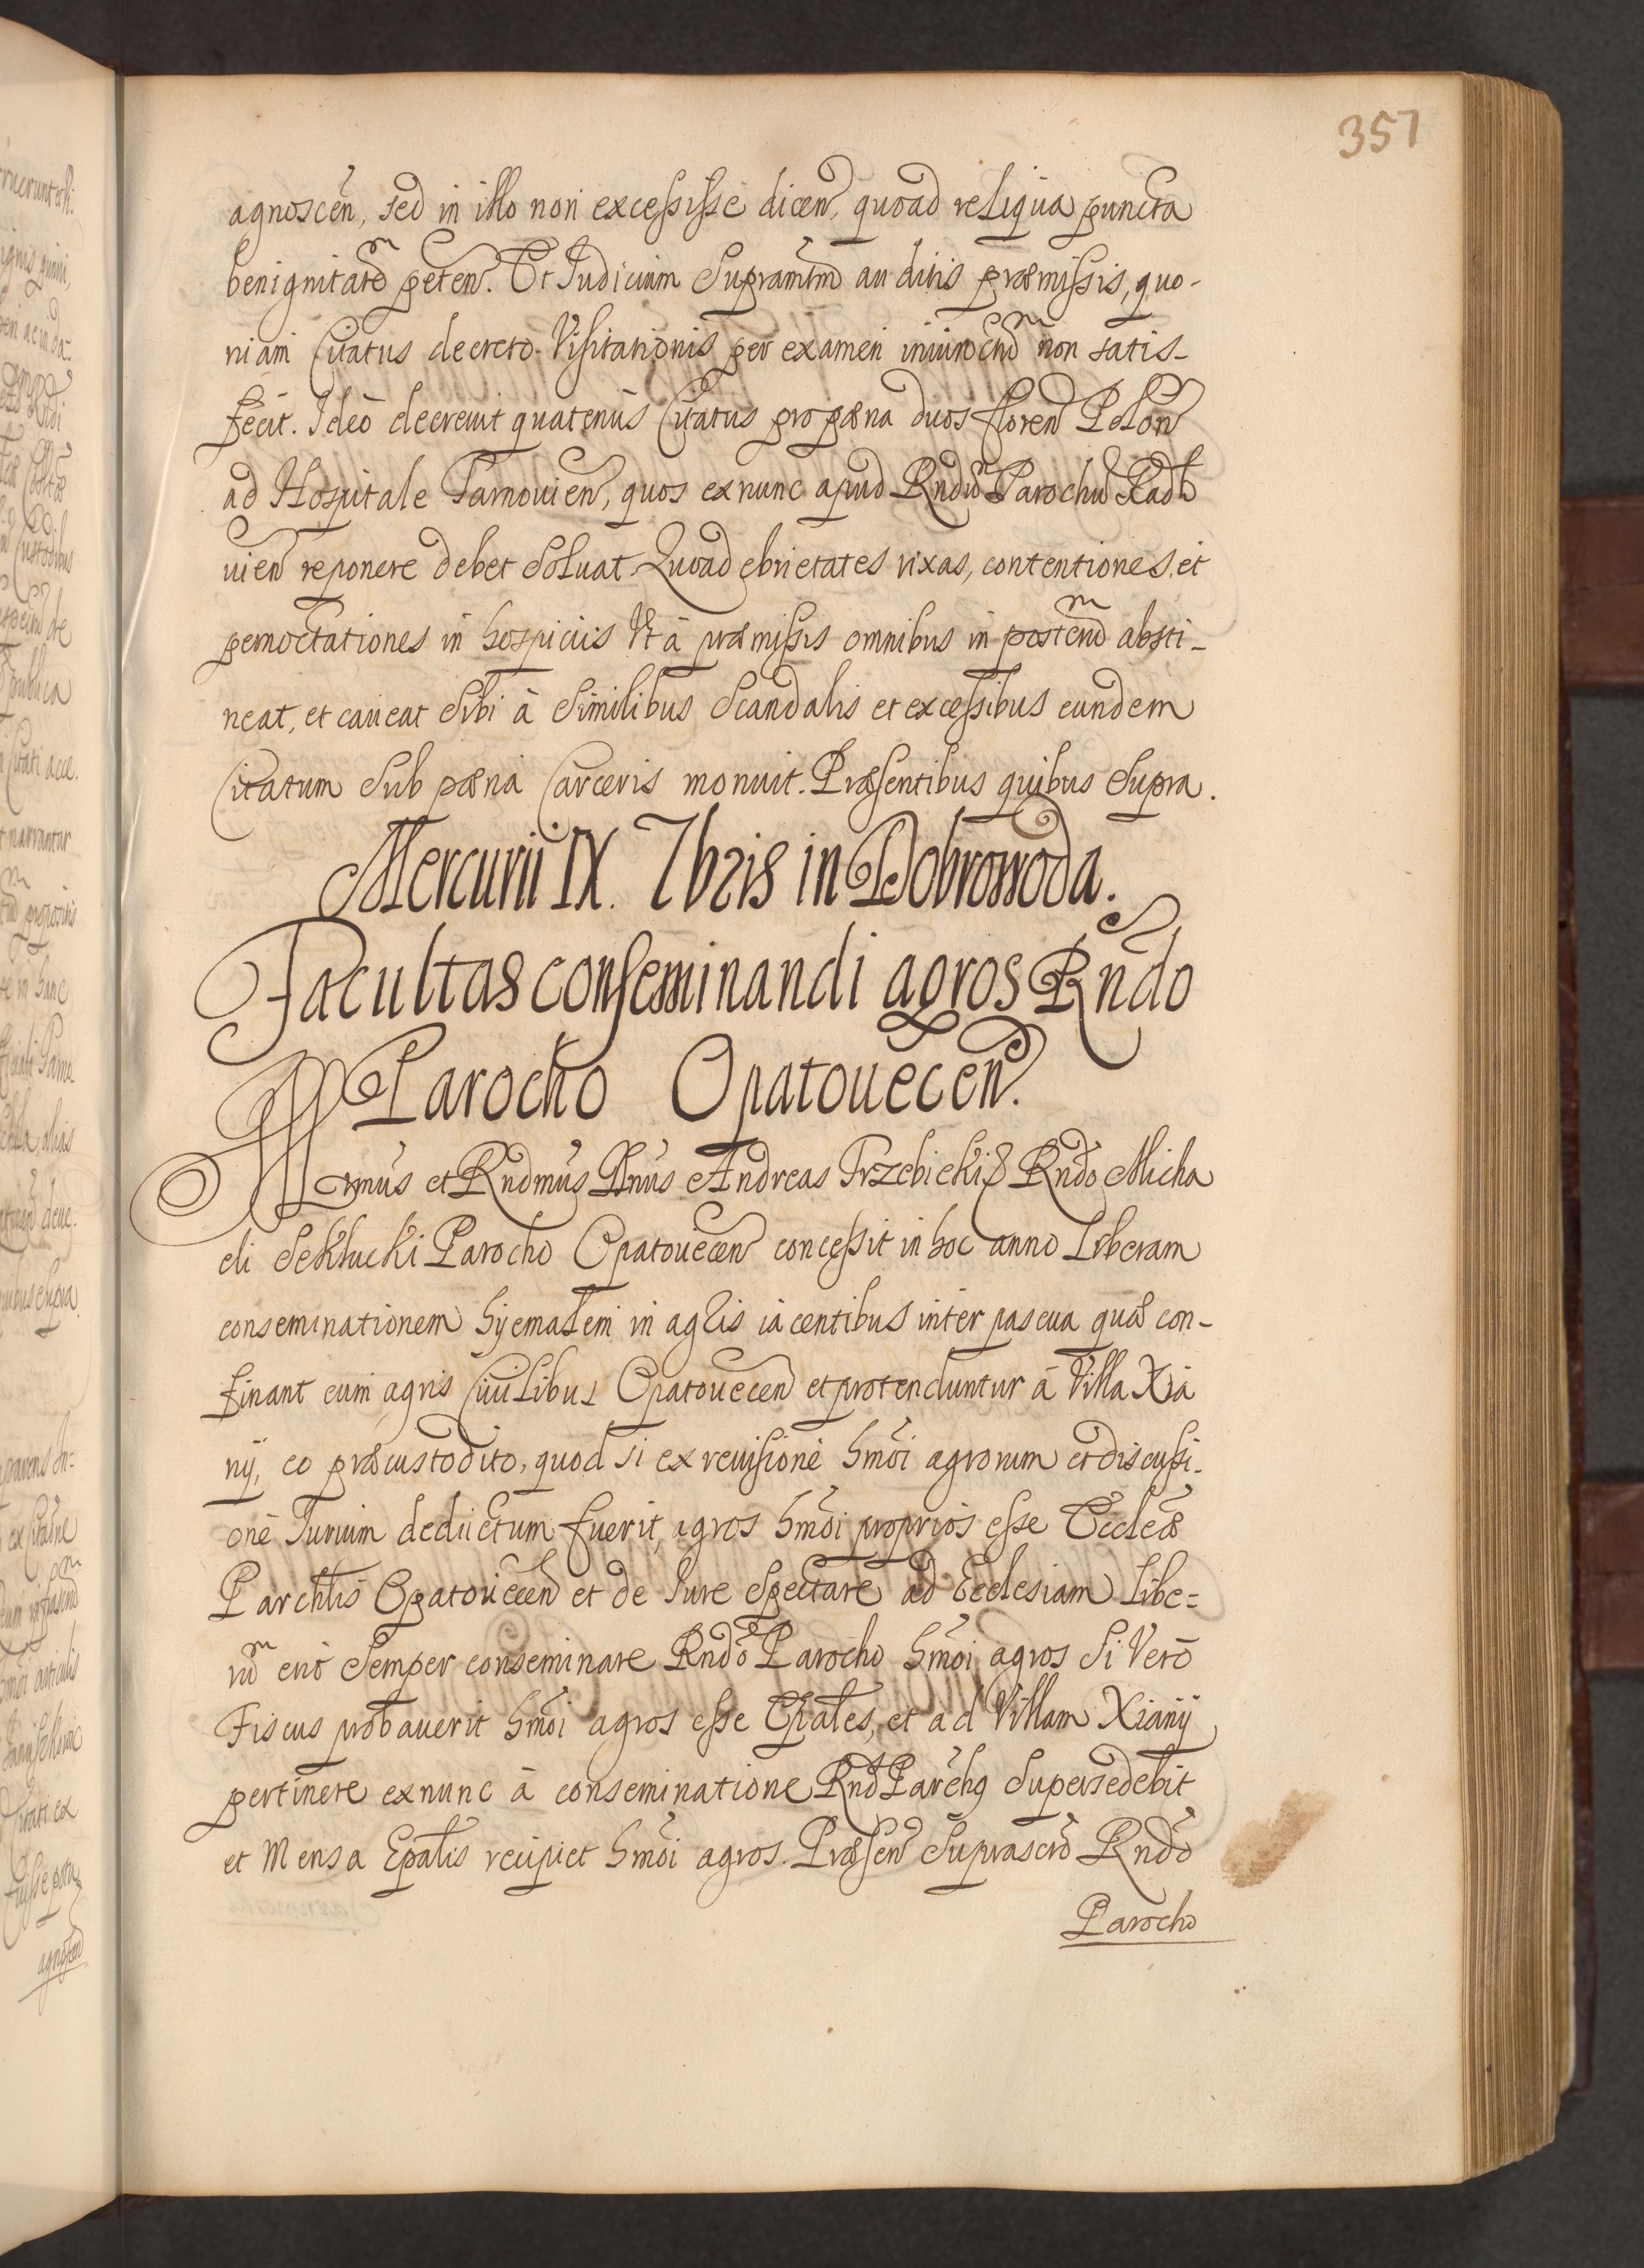 357
agnoscen, sed in illo non excessisse dicen, quoad reliqua puncta
benignitatē peten. Et Iudicium Supramtm auditis præmissis, quo-
niam Citatus decreto Visitationis per examen iniunctū non satis-
fecit. Ideo decrevit quatenus Citatus pro pæna duos floren Polon
ad Hospitale Tarnouien, quos ex nunc apud Rndū Parochū Radło
uien reponere debet Soluat. Quoad ebrietates rixas, contentiones, et
pernoctationes in hospiciis Vt à præmissis omnibus in posterū absti-
neat, et caueat Sibi à Similibus Scandalis et excessibus eundem
Citatum Sub pæna Carceris monuit. Præsentibus quibus Supra.
Mercurii IX. 7bris in Dobrowoda.
Facultas conseminandi agros Rndo
Parocho Opatouecen.
Illrmus et Rndmus Dnus Andreas Trzebicki & Rndo Micha
eli Sekłucki Parocho Opatouiecen concessit in hoc anno Liberam
conseminationem hyemalem in agris iacentibus inter pascua quæ con-
finant cum agris Ciuilibus Opatouecen et protenduntur à Villa Xia
nÿ, eo præcustodito, quod si ex reuisione hmoi agrorum et discussi-
one Iurium deductum fuerit, agros hmoi proprios esse Eccleæ
Parchlis Opatouecen et de Iure Spectare ad Ecclesiam Libe=
rū erit Semper conseminare Rndo Parocho hmoi agros Si Vero
Fiscus probauerit hmoi agros esse Epales, et ad Villam Xianÿ
pertinere ex nunc à conseminatione Rnd Parchs Supersedebit
et Mensa Epalis recipiet hmoi agros. Præsen Suprascro Rndo
Parocho